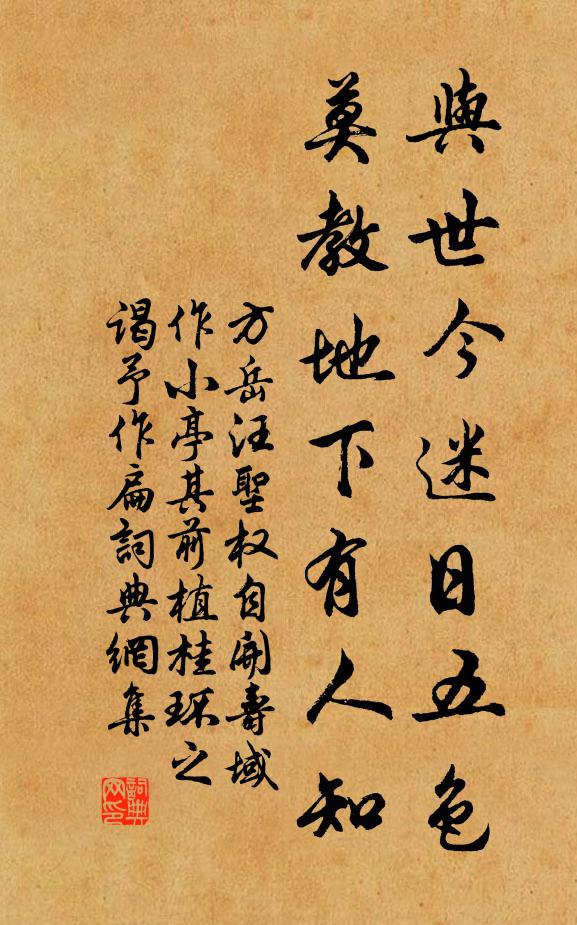 與世今迷日五色
莫教地下有人知
方岳汪聖权自開壽域
作小亭其前植桂环之
谒予作扁詞典網集
詞典网印